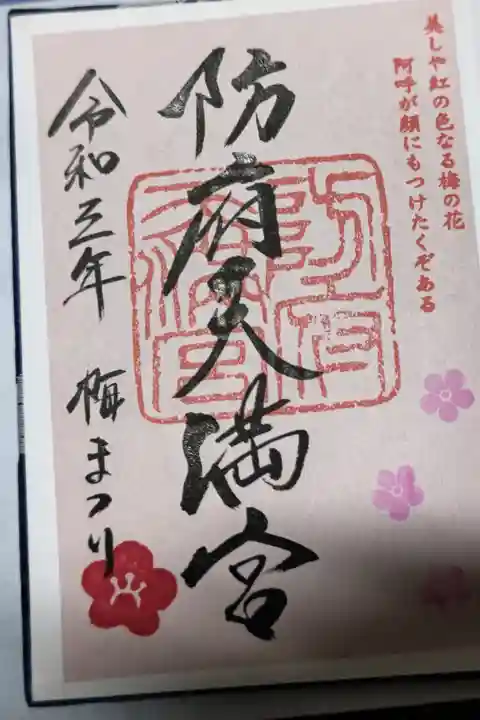 美しや紅の色なる梅の花
阿呼が顔にもつけたくぞある
防府天満宮
令和三年 梅まつり